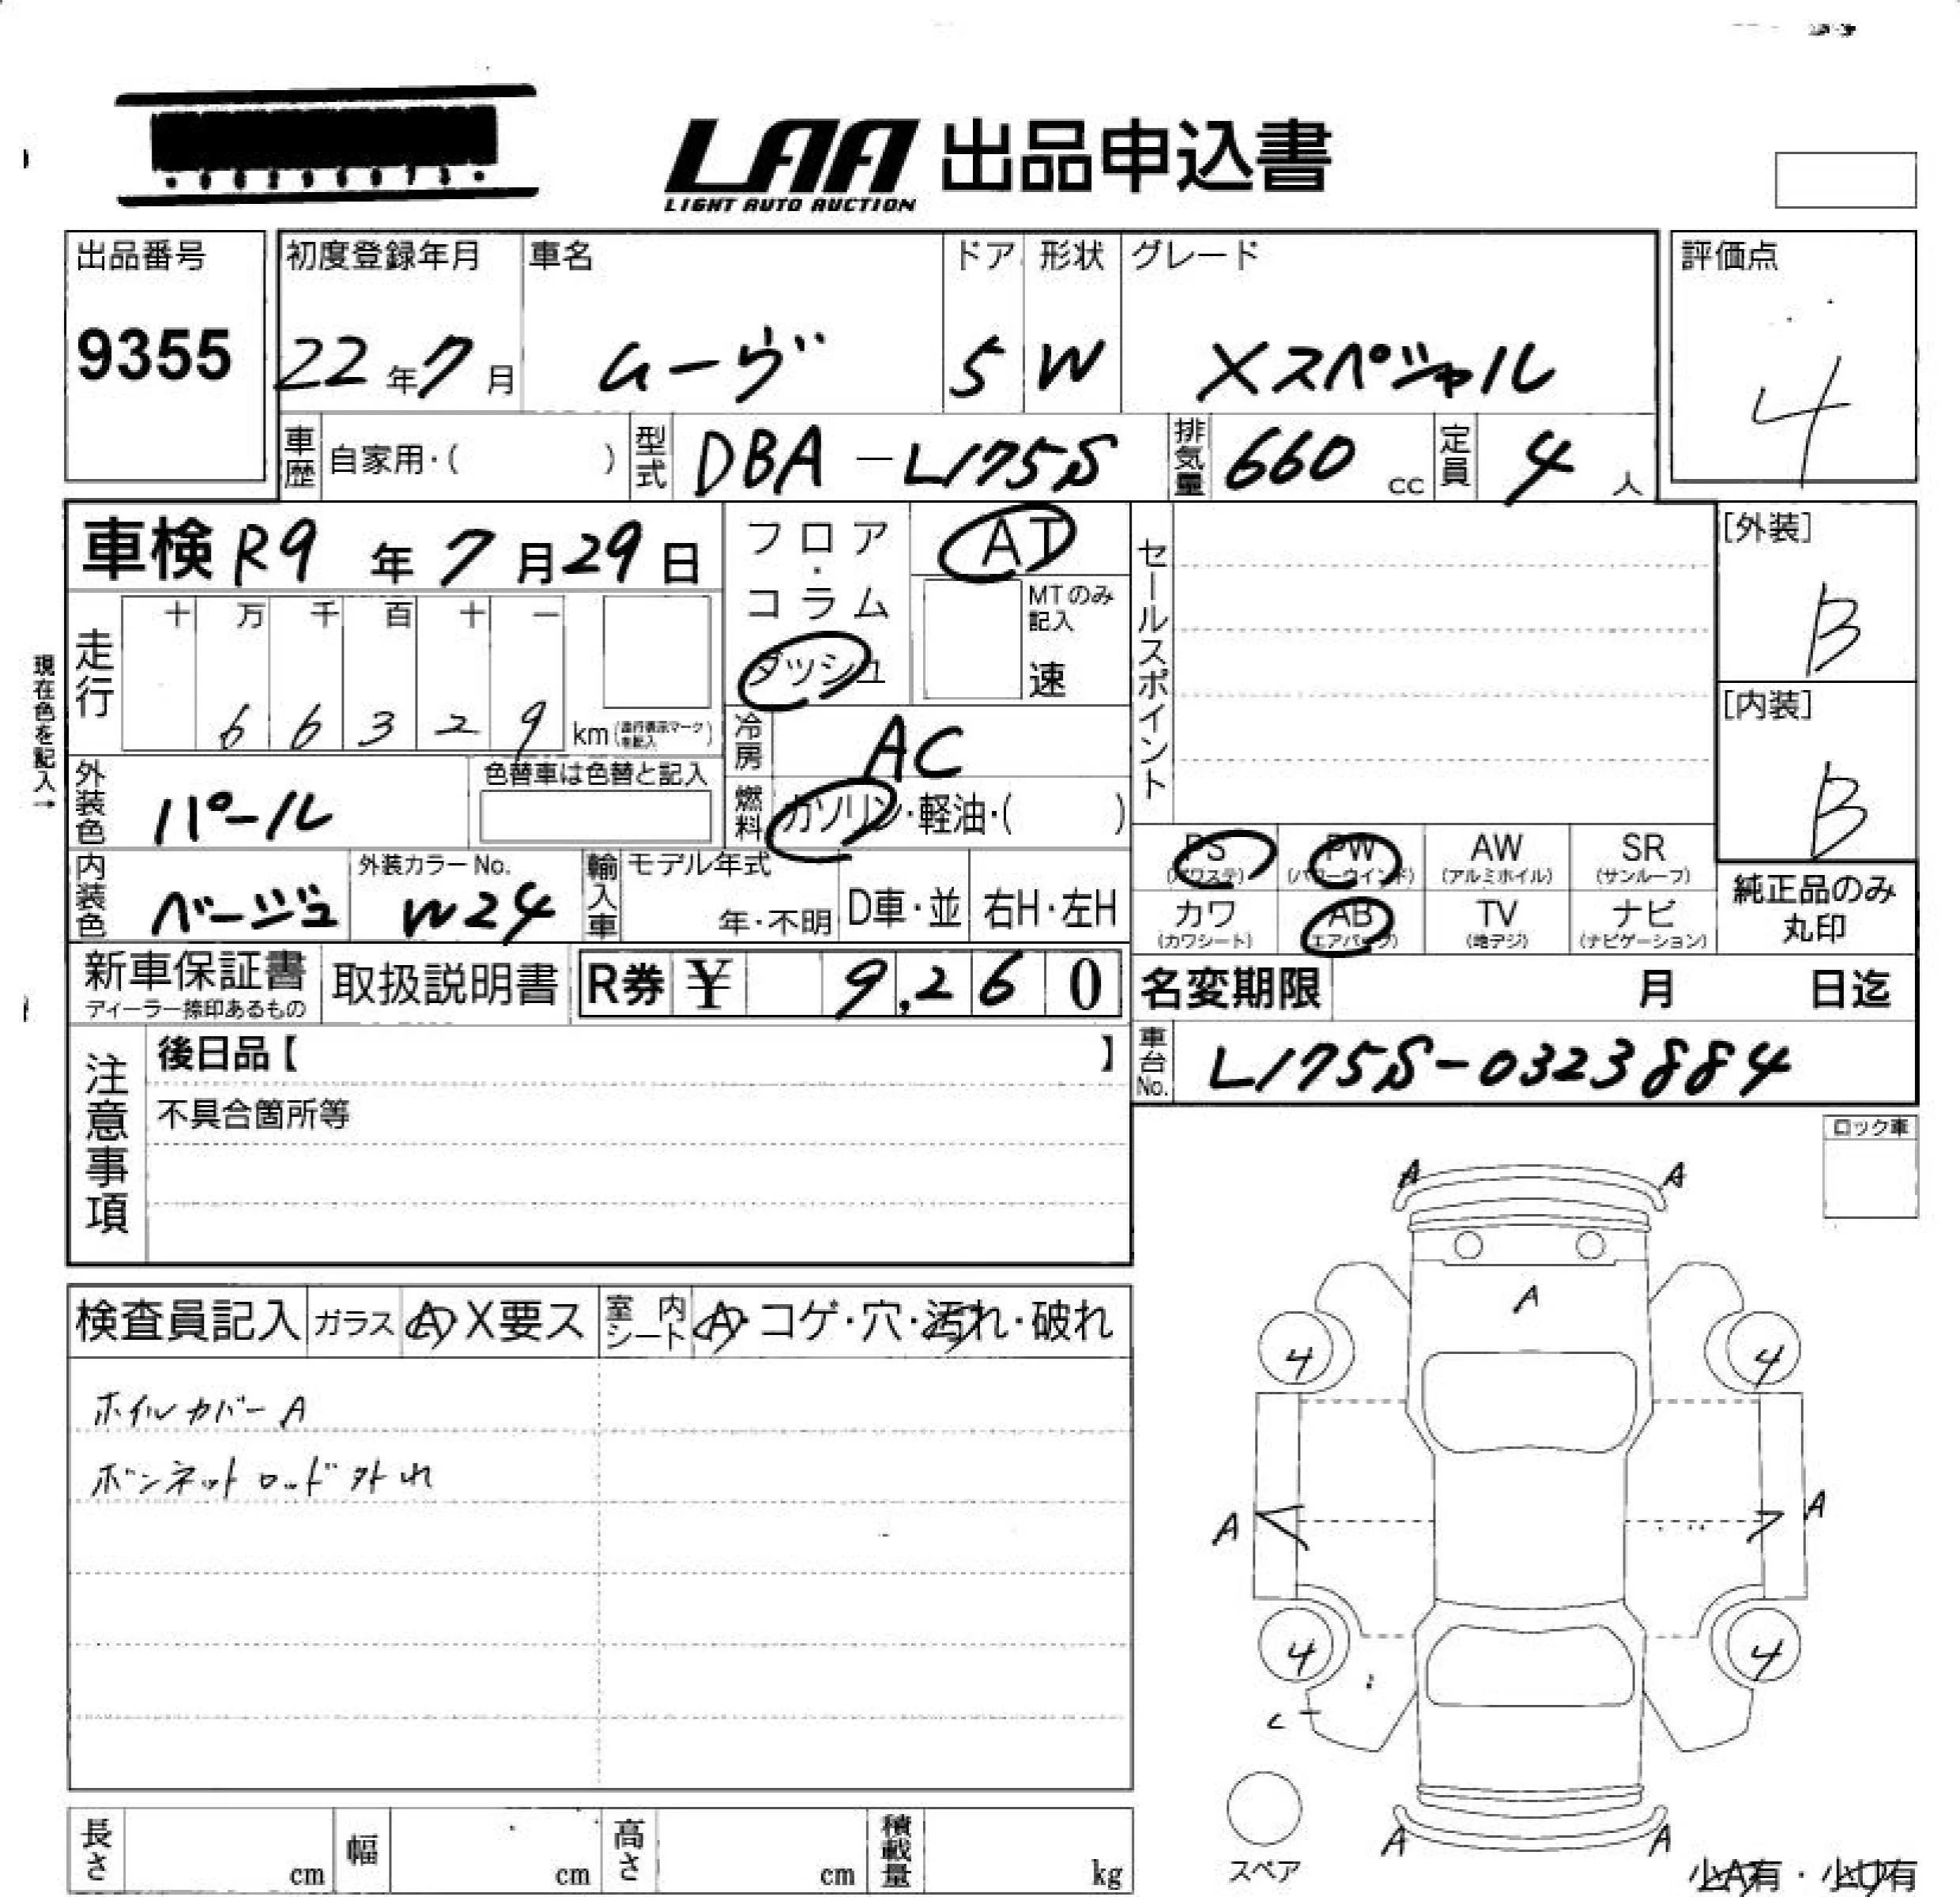 LAA 出品申込書
LIGHT AUTO AUCTION
出品番号
9355
初度登録年月
22年7月
車名
ムーヴ
ドア
5
形状
W
グレード
Xスペシャル
評価点
4
車歴 自家用・( )
型式 DBA-L175S
排気量 660 cc
定員 4 人
車検 R9 年 7 月 29 日
フロア・コラム
ダッシュ
AT
MTのみ記入
速
セールスポイント
[外装]
B
[内装]
B
現在色を記入→
走行
十 万 千 百 十 一
6 6 3 2 9 km
冷房 AC
燃料 ガソリン・軽油・( )
外装色 パール
色替車は色替と記入
内装色 ベージュ
外装カラーNo.
W24
輸入車
モデル年式
年・不明
D車・並
右H・左H
PS
(パワステ)
PW
(パワーウインド)
AW
(アルミホイル)
SR
(サンルーフ)
カワ
(カワシート)
AB
(エアバッグ)
TV
(地デジ)
ナビ
(ナビゲーション)
純正品のみ
丸印
新車保証書
ディーラー捺印あるもの
取扱説明書
R券 ¥ 9,260
名変期限 月 日迄
車台No. L175S-0323884
注意事項
後日品【 】
不具合箇所等
ロック車
検査員記入
ガラス A X要ス
室内シート A・コゲ・穴・汚れ・破れ
ホイルカバーA
ボンネットロッド外れ
A A
A
4 4
A A
4 4
A A
スペア
小A有・小U有
長さ cm
幅 cm
高さ cm
積載量 kg